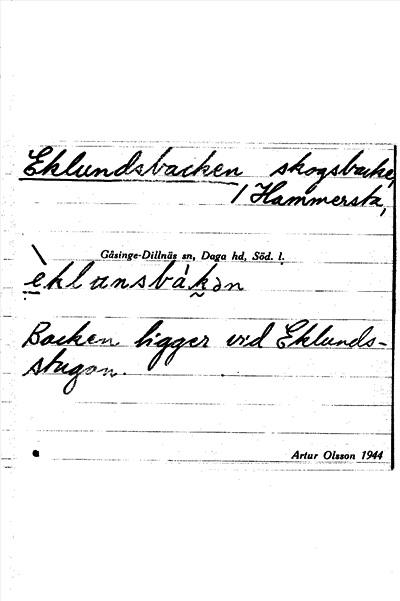 Eklundsbacken skogsbacke,
/ Hammersta,
Gåsinge-Dillnäs sn, Daga hd, Söd. l.
èklunsbàkən
Backen ligger vid Eklunds-
stugan.
Artur Olsson 1944